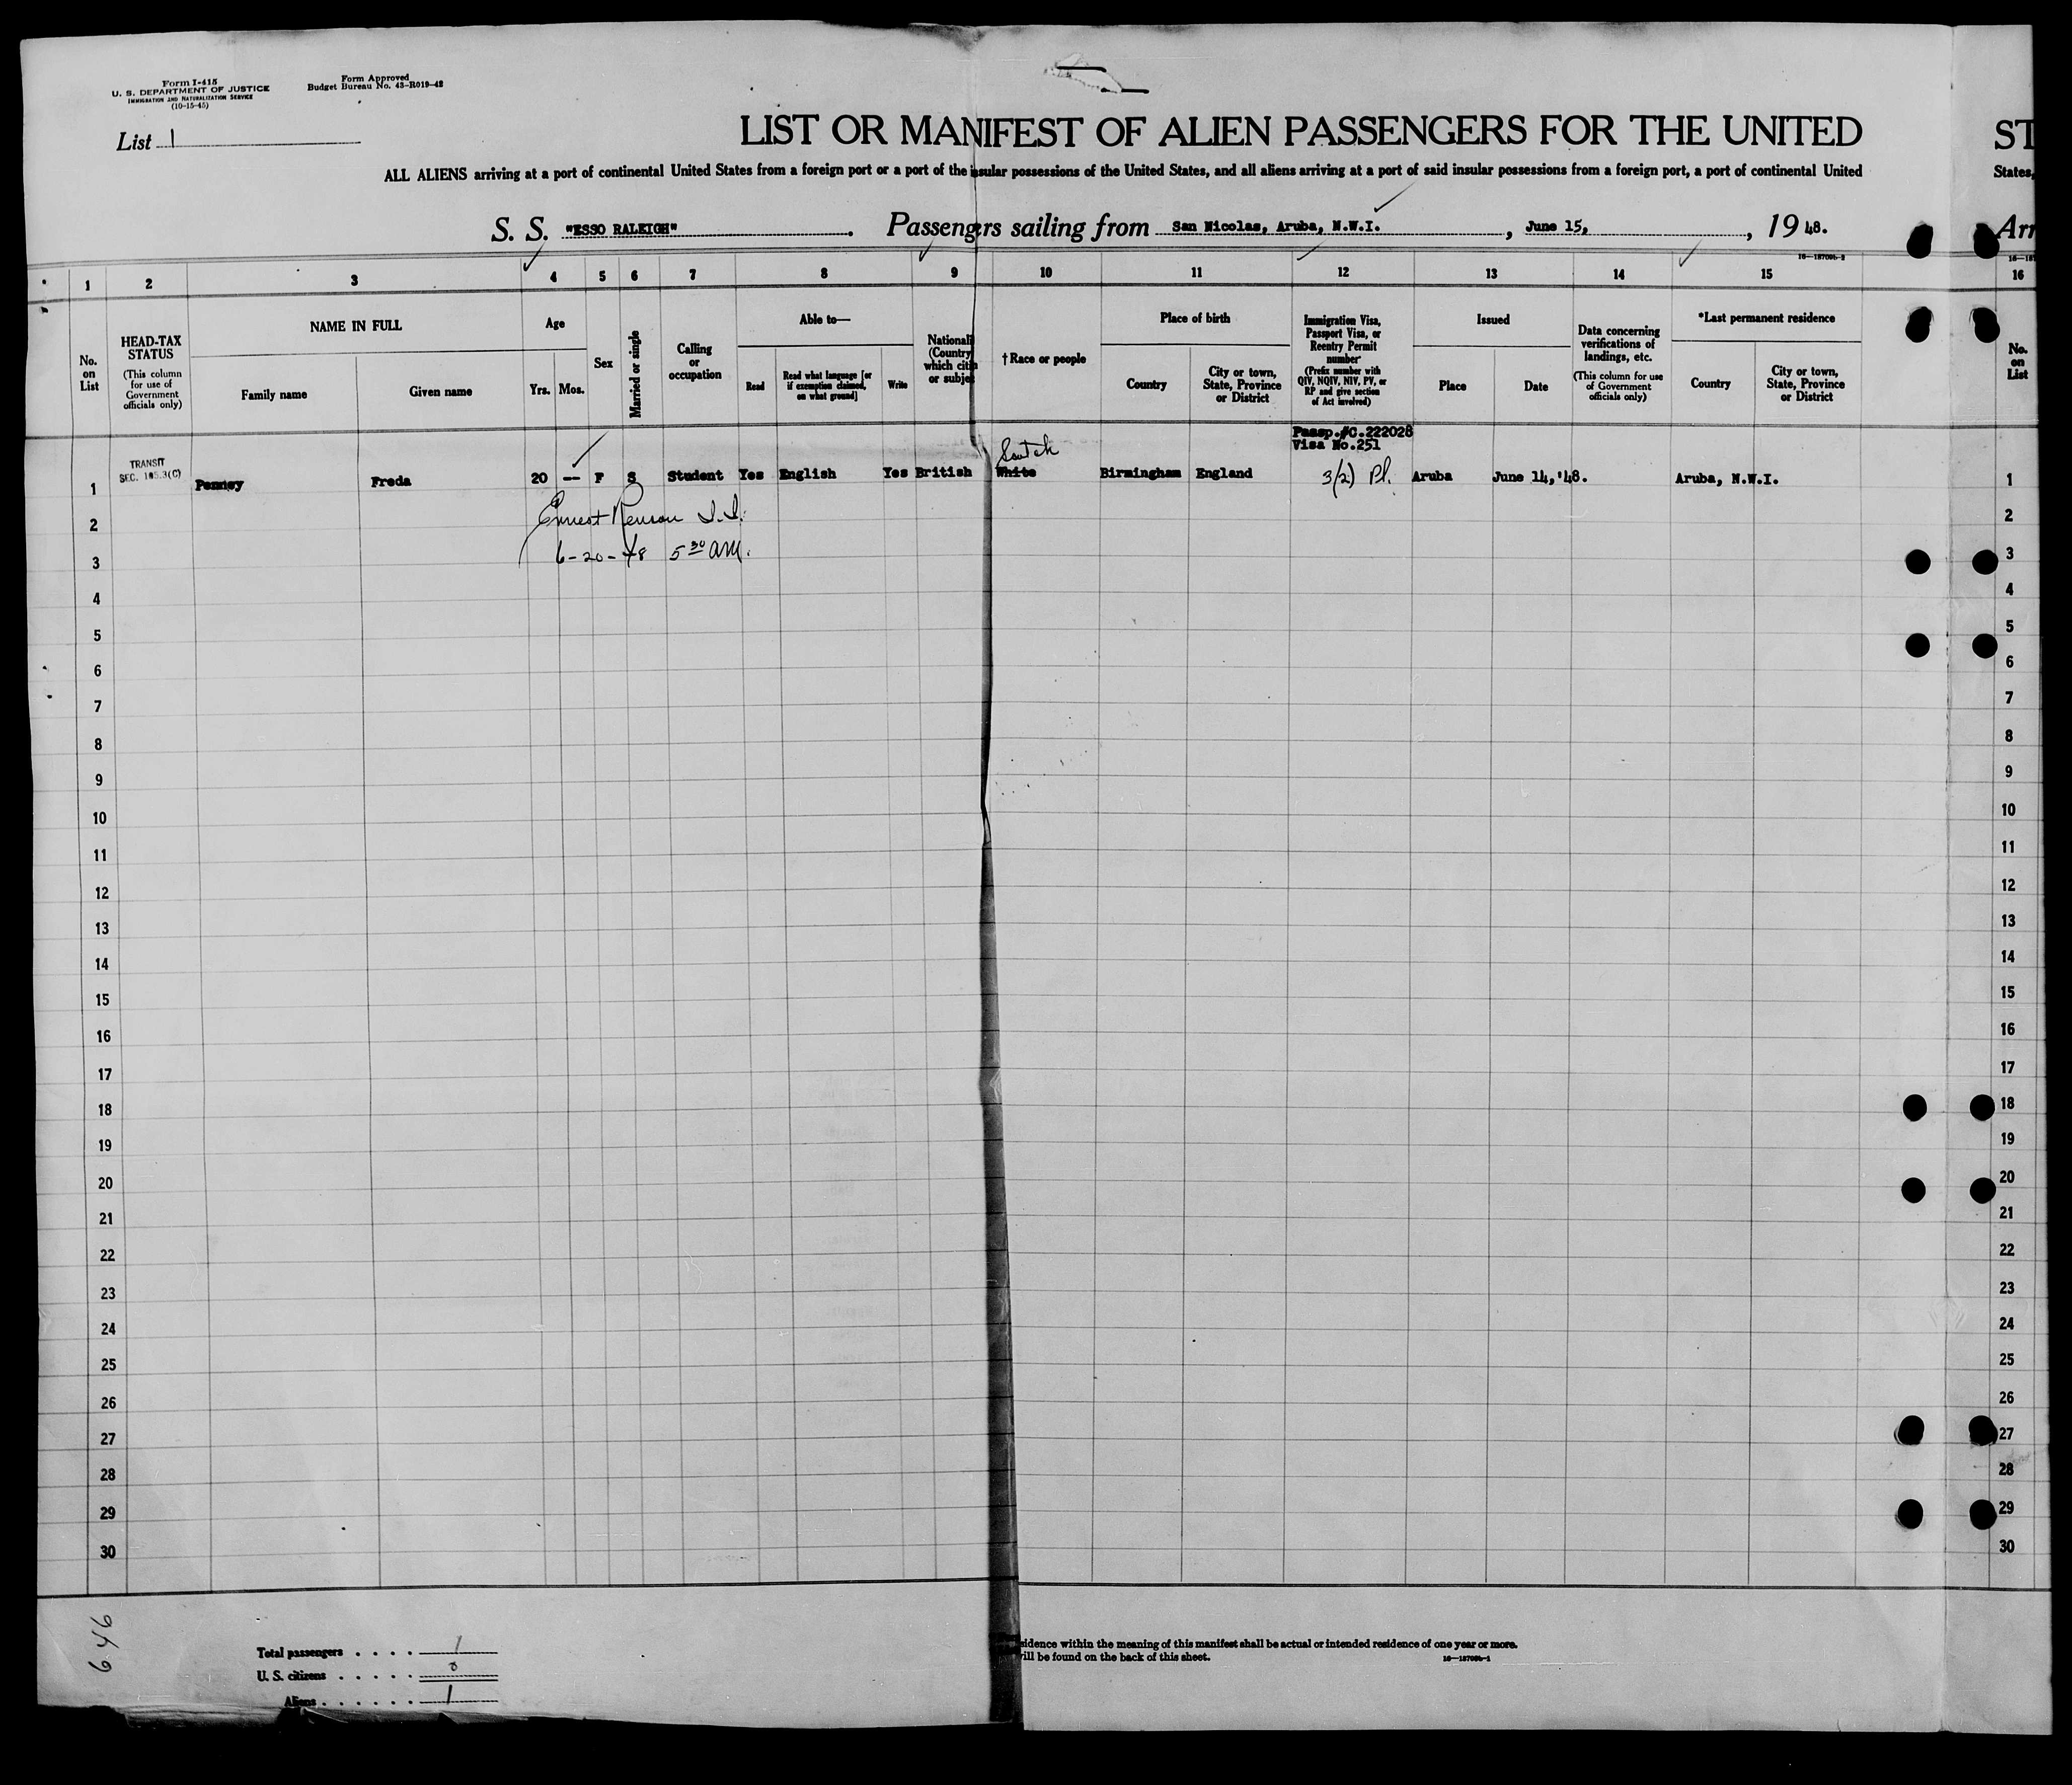 Form I-415
U. S. DEPARTMENT OF JUSTICE
IMMIGRATION AND NATURALIZATION SERVICE
(10-15-45)
Form Approved
Budget Bureau No. 43-R019-42
List 1
LIST OR MANIFEST OF ALIEN PASSENGERS FOR THE UNITED
ST
ALL ALIENS arriving at a port of continental United States from a foreign port or a port of the insular possessions of the United States, and all aliens arriving at a port of said insular possessions from a foreign port, a port of continental United
States,
S. S. "ESSO RALEIGH". Passengers sailing from San Nicolas, Aruba, N.W.I., June 15, 1948.
Arr
1 2 3 4 5 6 7 8 9 10 11 12 13 14 15 16
No. on List
HEAD-TAX STATUS (This column for use of Government officials only)
NAME IN FULL
Family name
Given name
Age
Yrs.
Mos.
Sex
Married or single
Calling or occupation
Able to—
Read
Read what language [or if exemption claimed, on what ground]
Write
National
(Country
which citi
or subje
†Race or people
Place of birth
Country
City or town, State, Province or District
Immigration Visa, Passport Visa, or Reentry Permit number
(Prefix number with QIV, NQIV, NIV, PV, or RP and give section of Act involved)
Issued
Place
Date
Data concerning verifications of landings, etc.
(This column for use of Government officials only)
*Last permanent residence
Country
City or town, State, Province or District
No. on List
Passp.#C.222028
Visa No.251
Scotch
1 TRANSIT SEC. 105.3(C) Penney Freda 20 -- F S Student Yes English Yes British White Birmingham England 3(2) Pl. Aruba June 14,'48. Aruba, N.W.I. 1
2 Ernest I.I. 2
3 6-20-48 5 30 AM. 3
4 4
5 5
6 6
7 7
8 8
9 9
10 10
11 11
12 12
13 13
14 14
15 15
16 16
17 17
18 18
19 19
20 20
21 21
22 22
23 23
24 24
25 25
26 26
27 27
28 28
29 29
30 30
646
Total passengers . . . . 1
U. S. citizens . . . . . 0
Aliens . . . . . . 1
sidence within the meaning of this manifest shall be actual or intended residence of one year or more.
will be found on the back of this sheet.